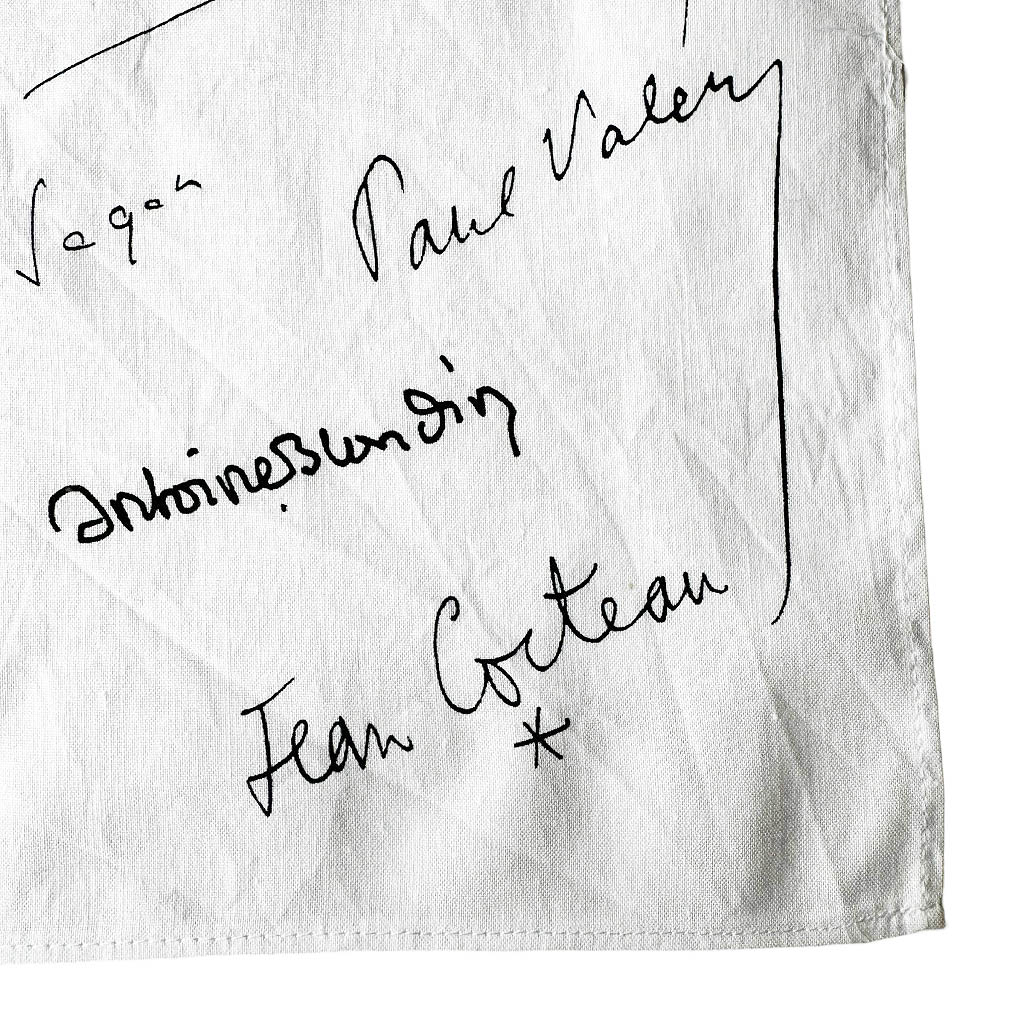 Sagan
Paul Valery
antoine Blondin
Jean Cocteau
*